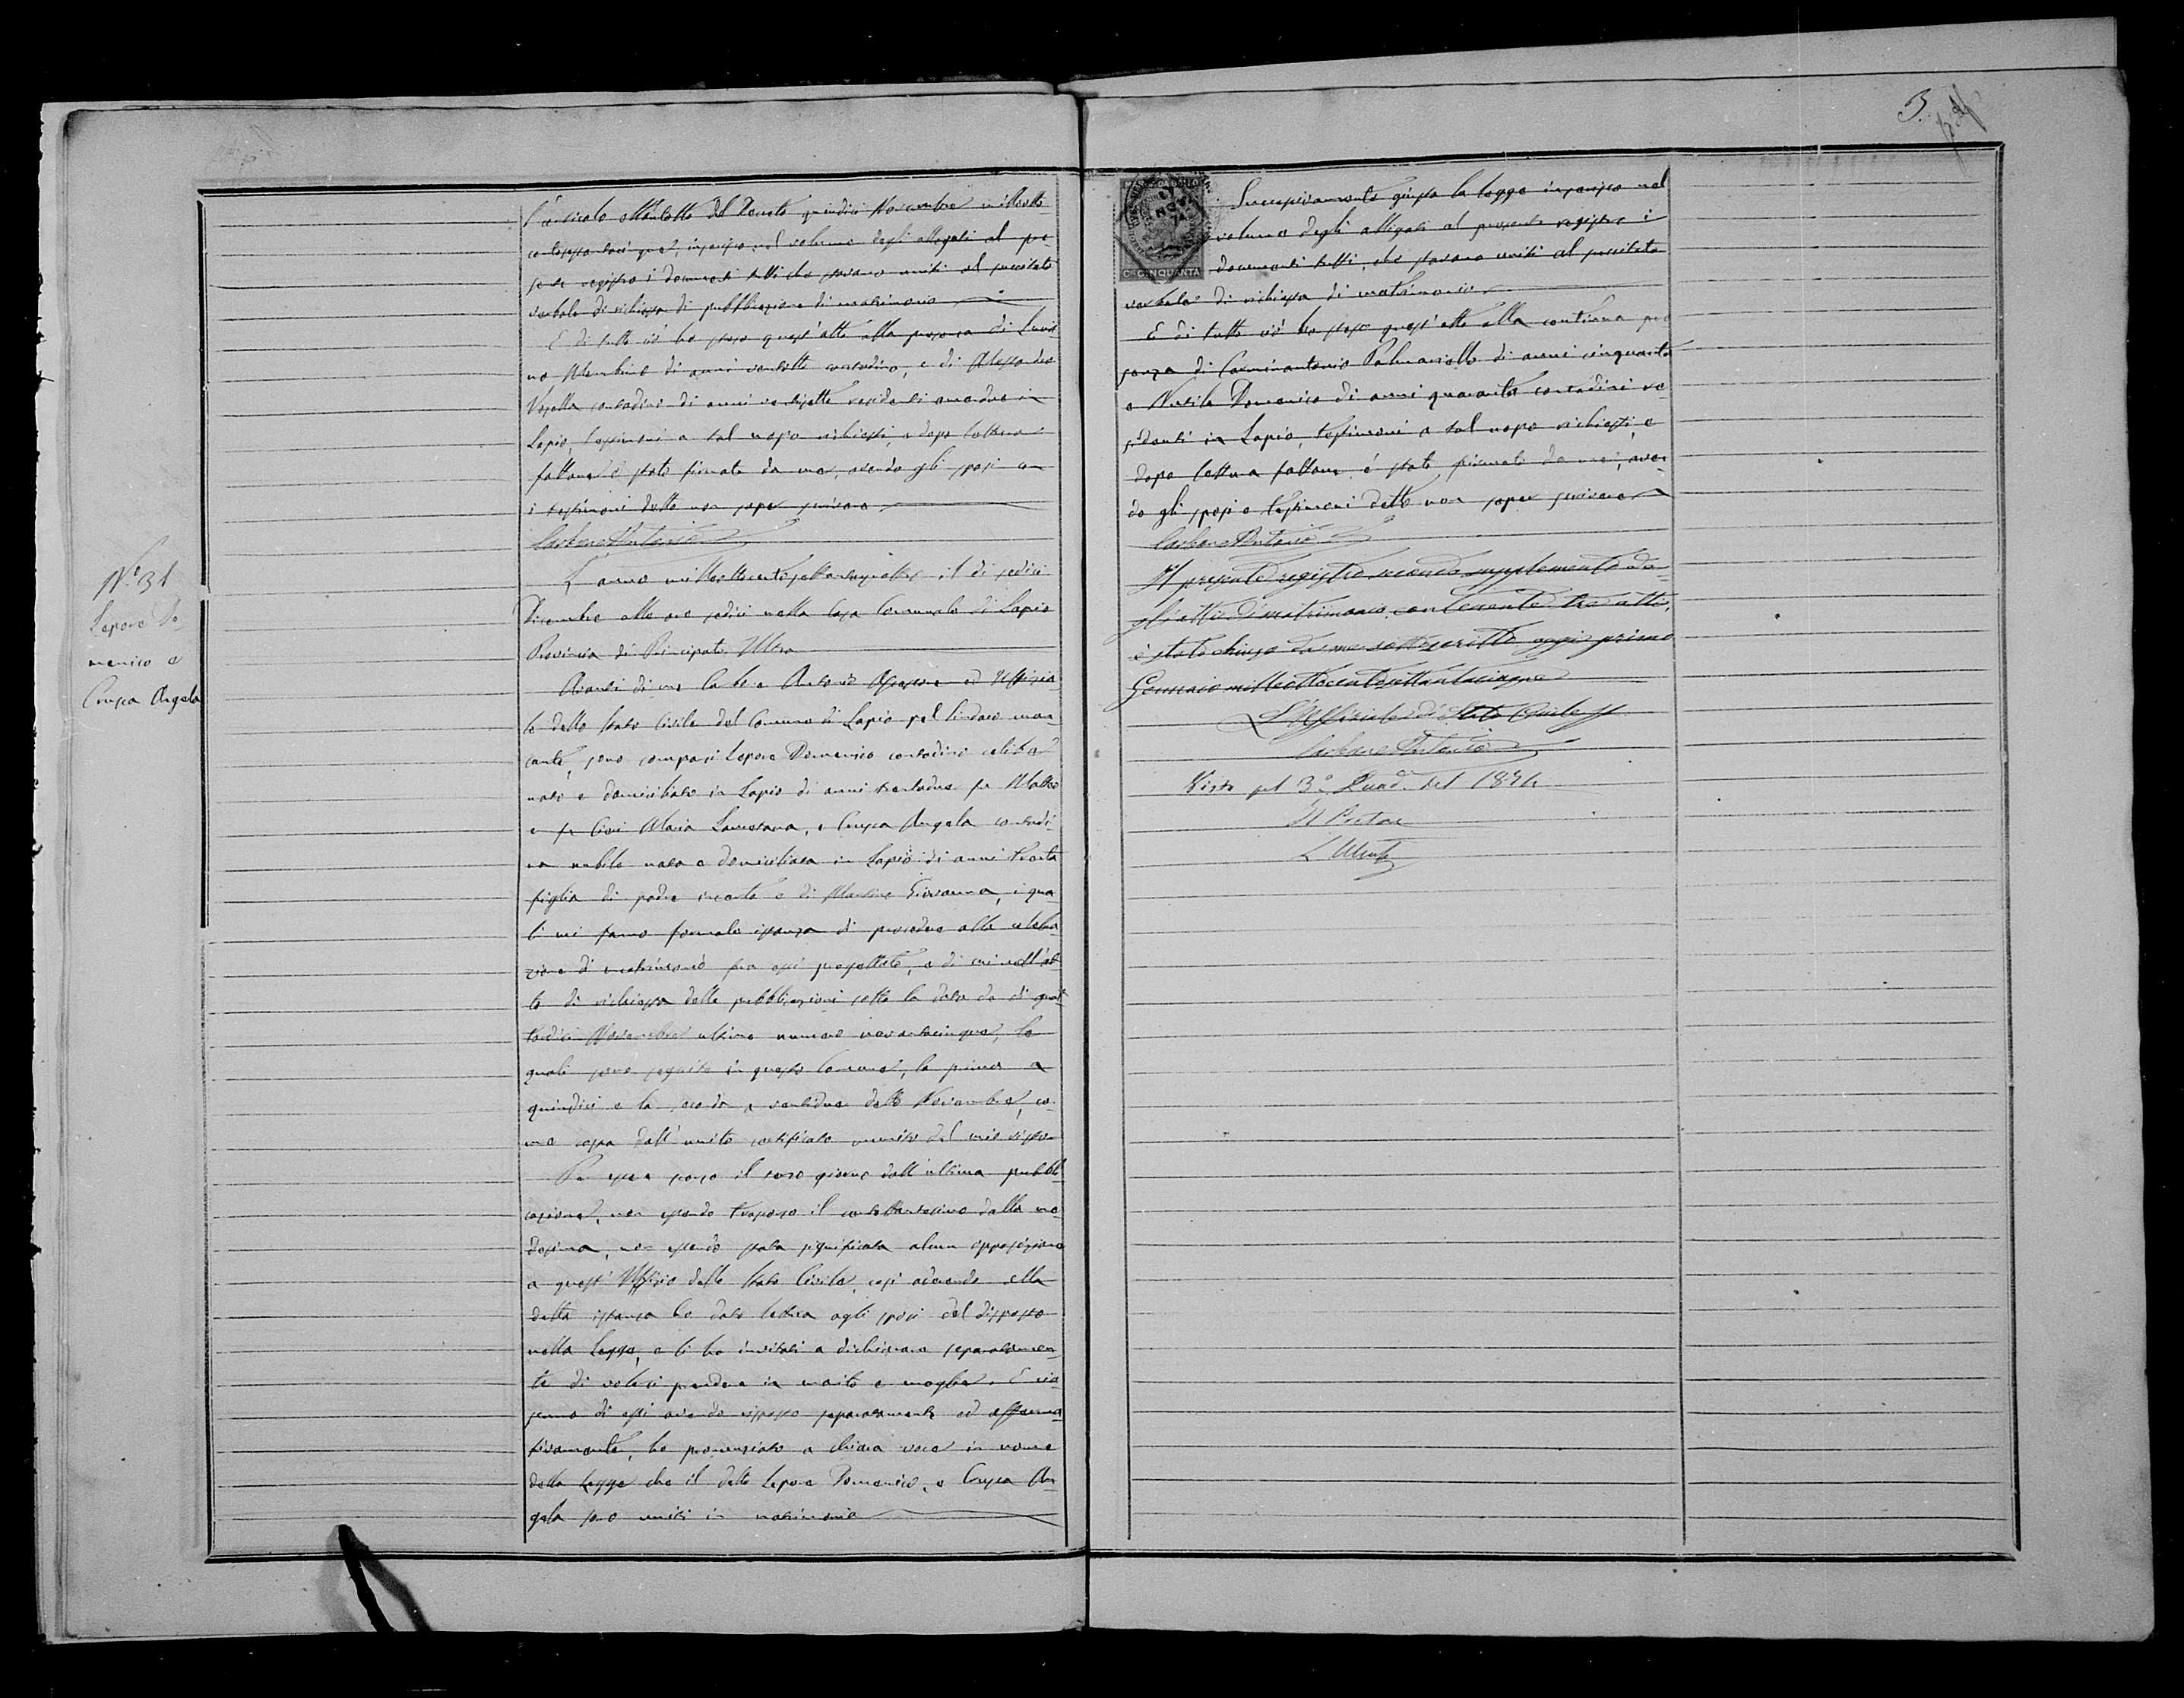 L'articolo ottantotto del Decreto quindici Novembre milleotto
centosessantacinque, inserisco nel volume degli allegati al pre
sente registro i documenti tutti che stavano uniti al precitato
verbale di richiesta di pubblicazione di matrimonio
E di tutto ciò ho steso quest'atto alla presenza di
no di anni ventotto contadino, e di Alessandro
Vosella contadini di anni residenti amendue in
Lapio, testimoni a tal uopo richiesti, e dopo lettura
fattane è stato firmato da me, avendo gli sposi con
i testimoni detto non saper scrivere
Carbone Antonio
N.º 31
Lepore Do
menico e
Crusca Angela
L'anno milleottocentosettantaquattro, il dì sedici
Dicembre alle ore sedici nella Casa Comunale di Lapio
Provincia di Principato Ultra
Avanti di me Carbone Antonio Assessore ed Uffizia
le dello Stato Civile del Comune di Lapio pel Sindaco man
cante, sono comparsi Lepore Domenico contadino celibe
nato e domiciliato in Lapio di anni trentadue fu
e fu Maria, e Crusca Angela contadi
na nubile nata e domiciliata in Lapio di anni trenta
figlia di padre incerto e di Giovanna, i qua
li mi fanno formale istanza di procedere alla celebra
zione di matrimonio fra essi progettato, e di cui nell'at
to di richiesta delle pubblicazioni sotto la data de dì quat
tordici Novembre ultimo numero novantacinque, le
quali sono seguite in questo Comune, la prima a
quindici e la seconda a ventidue detto Novembre, co
me costa dall'unito certificato munito del mio visto
Per essere scorso il terzo giorno dall'ultima pubbli
cazione, non essendo trascorso il centottantesimo dalla me
desima, non essendo stata significata alcuna opposizione
a quest'Uffizio dello Stato Civile, così aderendo alla
detta istanza ho dato lettura agli sposi del disposto
nella Legge, e li ho invitati a dichiarare separatamen
te di volersi prendere in marito e moglie. E cia
scuno di essi avendo risposto separatamente ed afferma
tivamente, ho pronunziato a chiara voce in nome
della Legge che il detto Lepore Domenico, e Crusca An
gela sono uniti in matrimonio
3.
Cmi CINQUANTA
Successivamente giusta la legge inserisco nel
volume degli alligati al presente registro i
documenti tutti, che stavano uniti al precitato
verbale di richiesta di matrimonio
E di tutto ciò ho steso quest'atto alla continua pre
senza di Carminantonio Palmariello di anni cinquanta
e Domenico di anni quaranta contadini re
sidenti in Lapio, testimoni a tal uopo richiesti, e
dopo lettura fattane, è stato firmato da me, aven
do gli sposi e testimoni detto non saper scrivere
Carbone Antonio
Il presente registro secondo supplemento de
gli atti di matrimonio contenente tre atti,
è stato chiuso da me sottoscritto oggi primo
Gennaio milleottocentosettantacinque
L'Uffiziale di Stato Civile ff
Carbone Antonio
Visto pel 3.º Quad. del 1874
Il Pretore